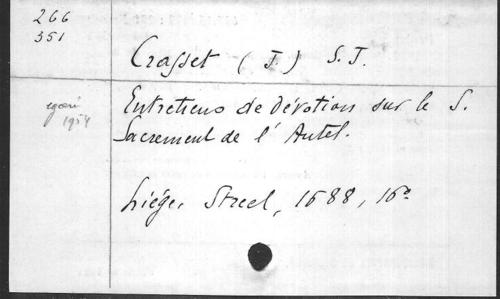 266
351
Crasset (J.) S.J.
égaré
1954
Entretiens de dévotion sur le S.
Sacrement de l'Autel.
Liége, Streel, 1688, 16°